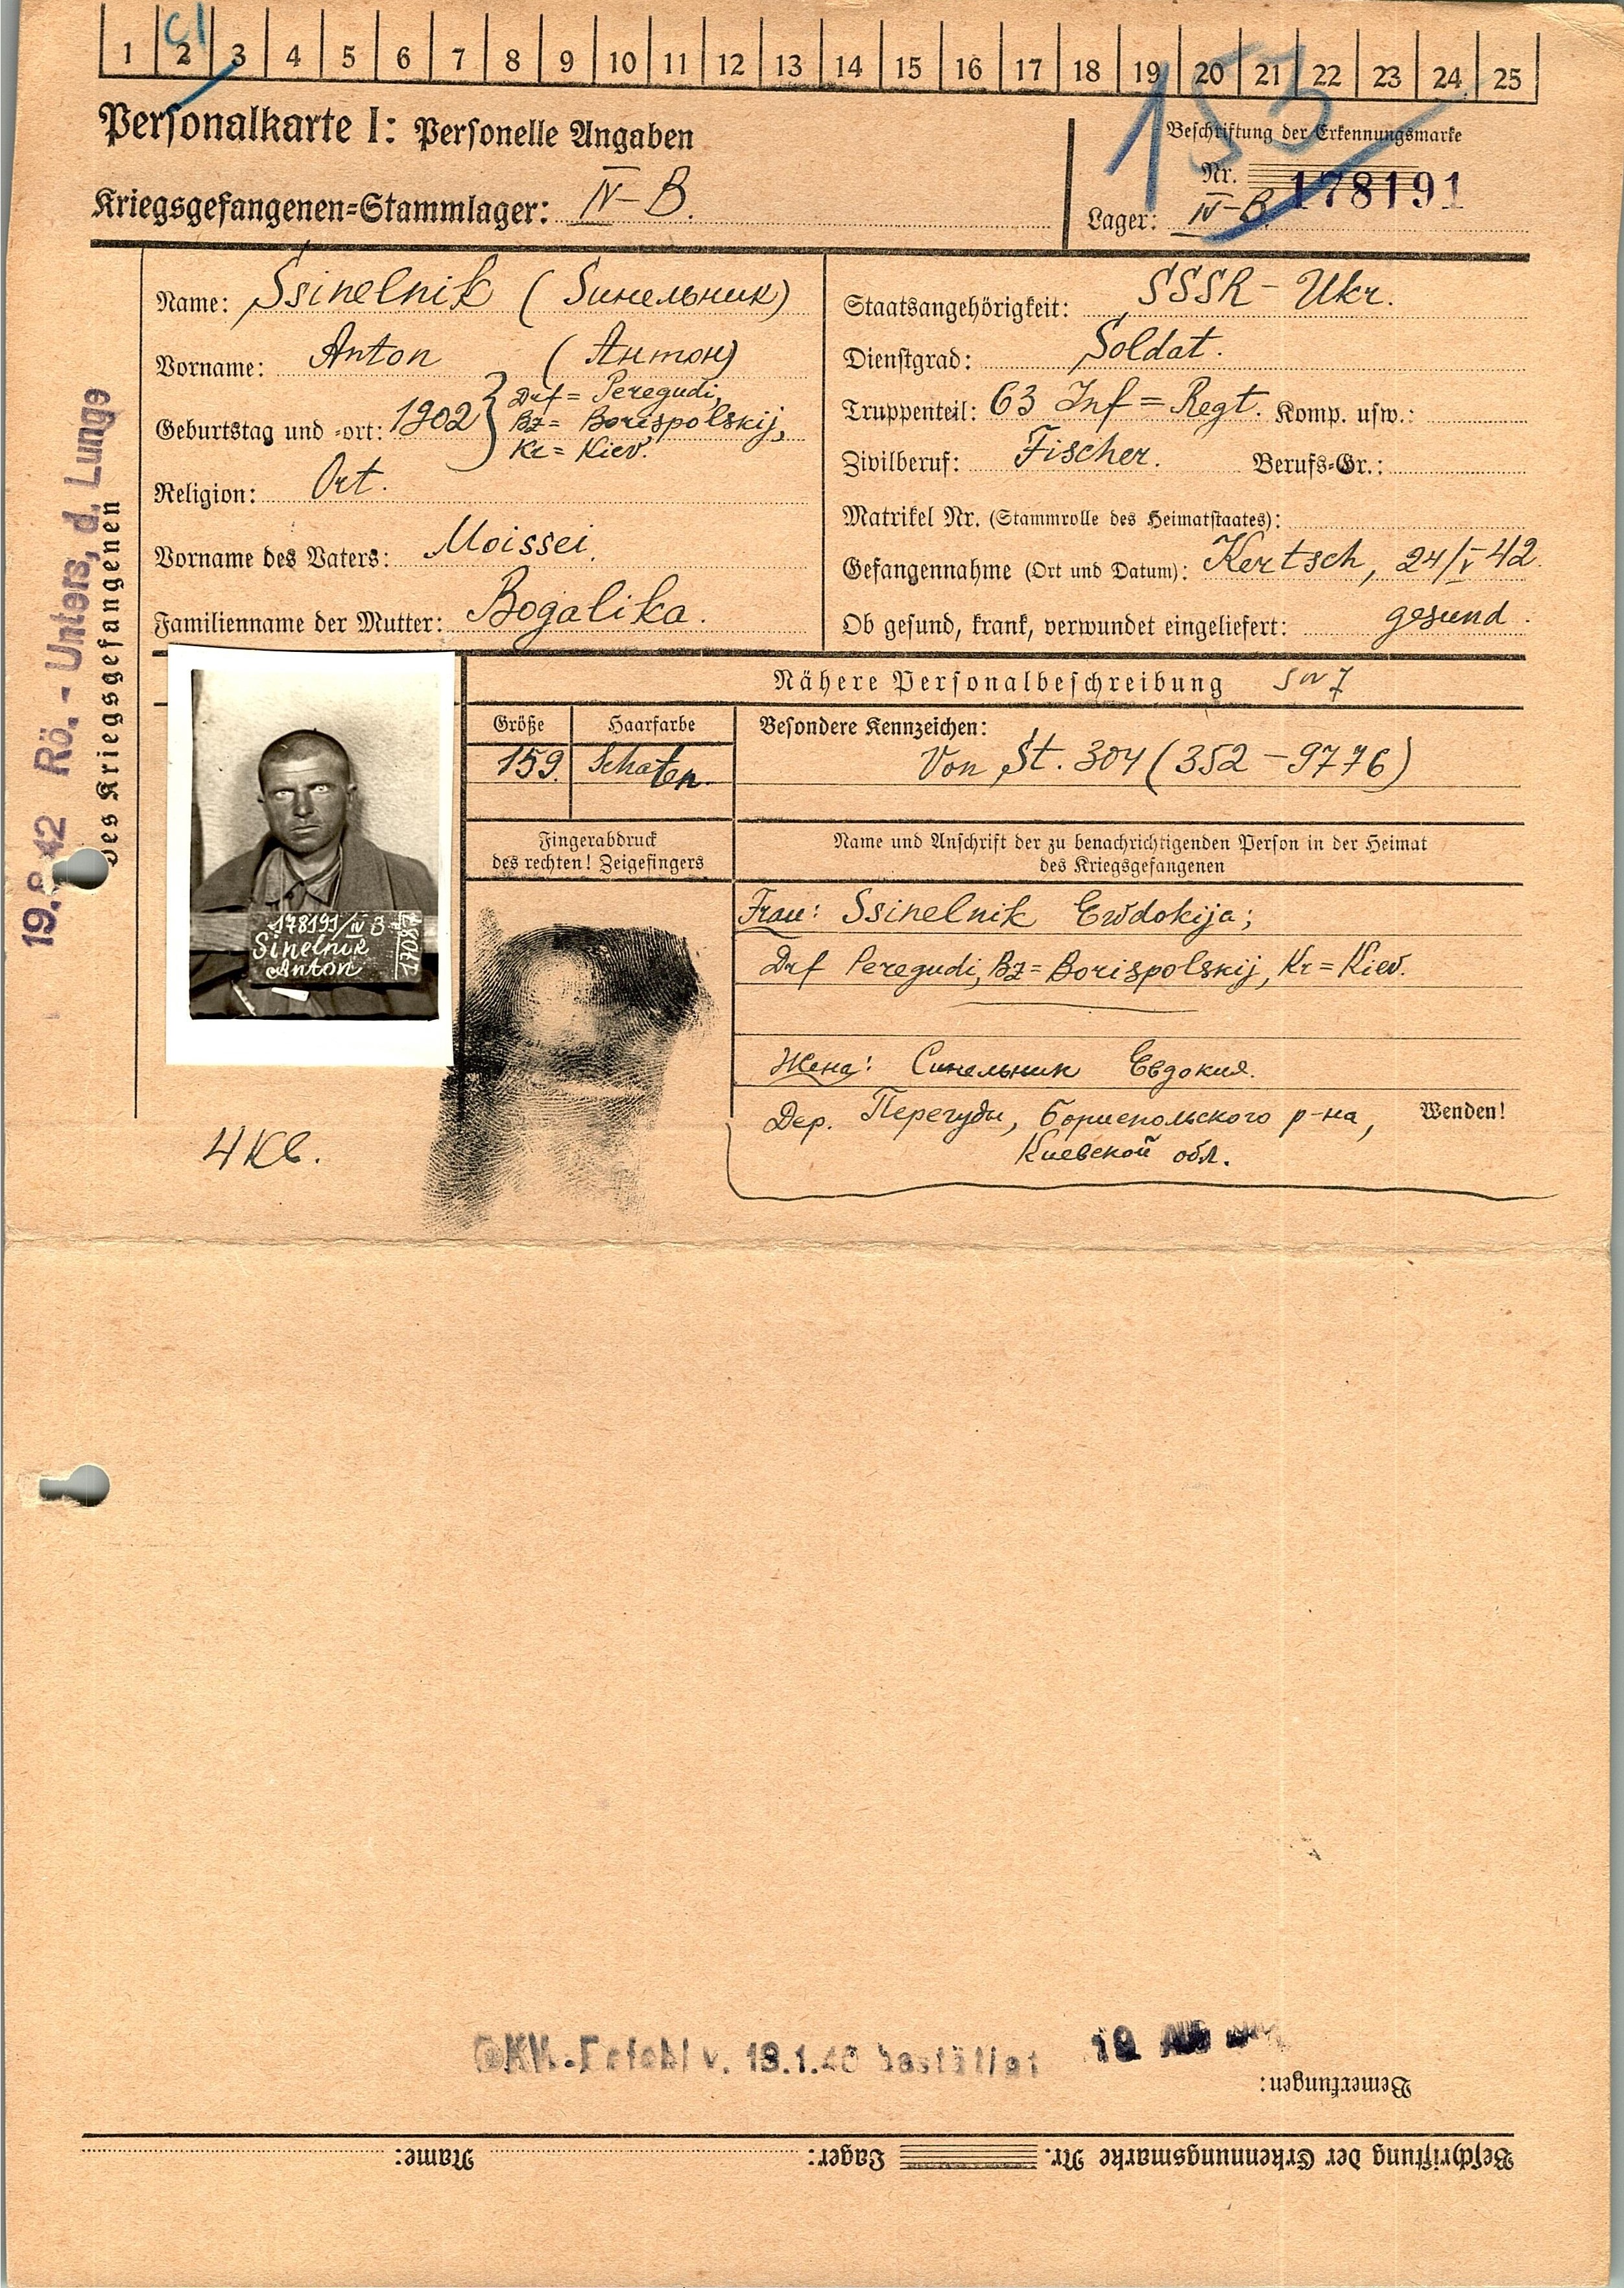 1 2 3 4 5 6 7 8 9 10 11 12 13 14 15 16 17 18 19 20 21 22 23 24 25
153
Personalkarte I: Personelle Angaben
Beschriftung der Erkennungsmarke
Nr. 178191
Kriegsgefangenen=Stammlager: IV-B.
Lager: IV-B
Name: Ssinelnik (Sинельник)
Vorname: Anton (Антон)
Geburtstag und -ort: 1902 } Drf = Peregudi,
Bz = Borispolskij,
Kr = Kiev.
Religion: Ort.
Vorname des Vaters: Moissei.
Familienname der Mutter: Bogalika.
Staatsangehörigkeit: SSSR - Ukr.
Dienstgrad: Soldat.
Truppenteil: 63 Inf = Regt. Komp. usw.:
Zivilberuf: Fischer. Berufs=Gr.:
Matrikel Nr. (Stammrolle des Heimatstaates):
Gefangennahme (Ort und Datum): Kertsch, 24/V 42.
Ob gesund, krank, verwundet eingeliefert: gesund.
19.8.42 Rö.-Unters, d. Lunge
des Kriegsgefangenen
178191/IV B
Sinelnik
Anton
Nähere Personalbeschreibung
Größe Haarfarbe Besondere Kennzeichen:
159. Schaten. Von St. 304 (352-9776)
Fingerabdruck
des rechten! Zeigefingers
Name und Anschrift der zu benachrichtigenden Person in der Heimat
des Kriegsgefangenen
Frau: Ssinelnik Ewdokija;
Drf Peregudi, Bz = Borispolskij, Kr = Kiev.
Жена: Синельник Евдокия.
Дер. Перегуды, Бориспольского р-на,
Киевской обл.
Wenden!
4 Кв.
OKW.-Befehl v. 19.1.
Bemerkungen:
Beschriftung der Erkennungsmarke Nr. Lager: Name: